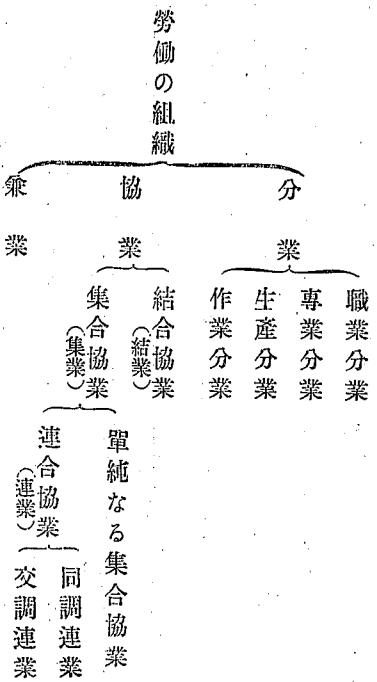 勞働の組織
分業
職業分業
專業分業
生產分業
作業分業
協業
結合協業
(結業)
集合協業
(集業)
單純なる集合協業
連合協業
(連業)
同調連業
交調連業
兼業